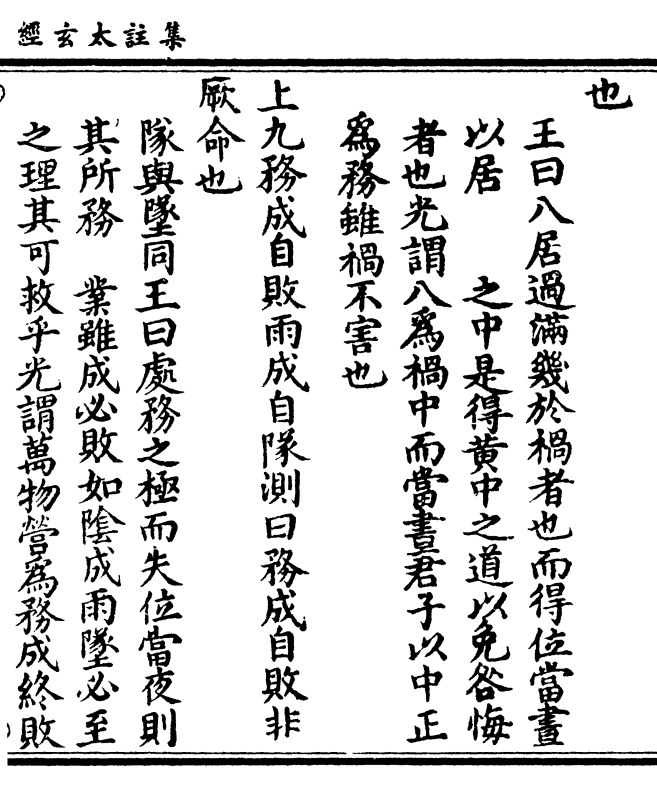 集註太玄經
也
王曰八居過滿幾於禍者也而得位當晝
以居　　之中是得黄中之道以免咎悔
者也光謂八爲禍中而當晝君子以中正
爲務雖禍不害也
上九務成自敗雨成自隊測曰務成自敗非
厥命也
隊與墜同王曰處務之極而失位當夜則
其所務　業雖成必敗如陰成雨墜必至
之理其可救乎光謂萬物營爲務成終敗